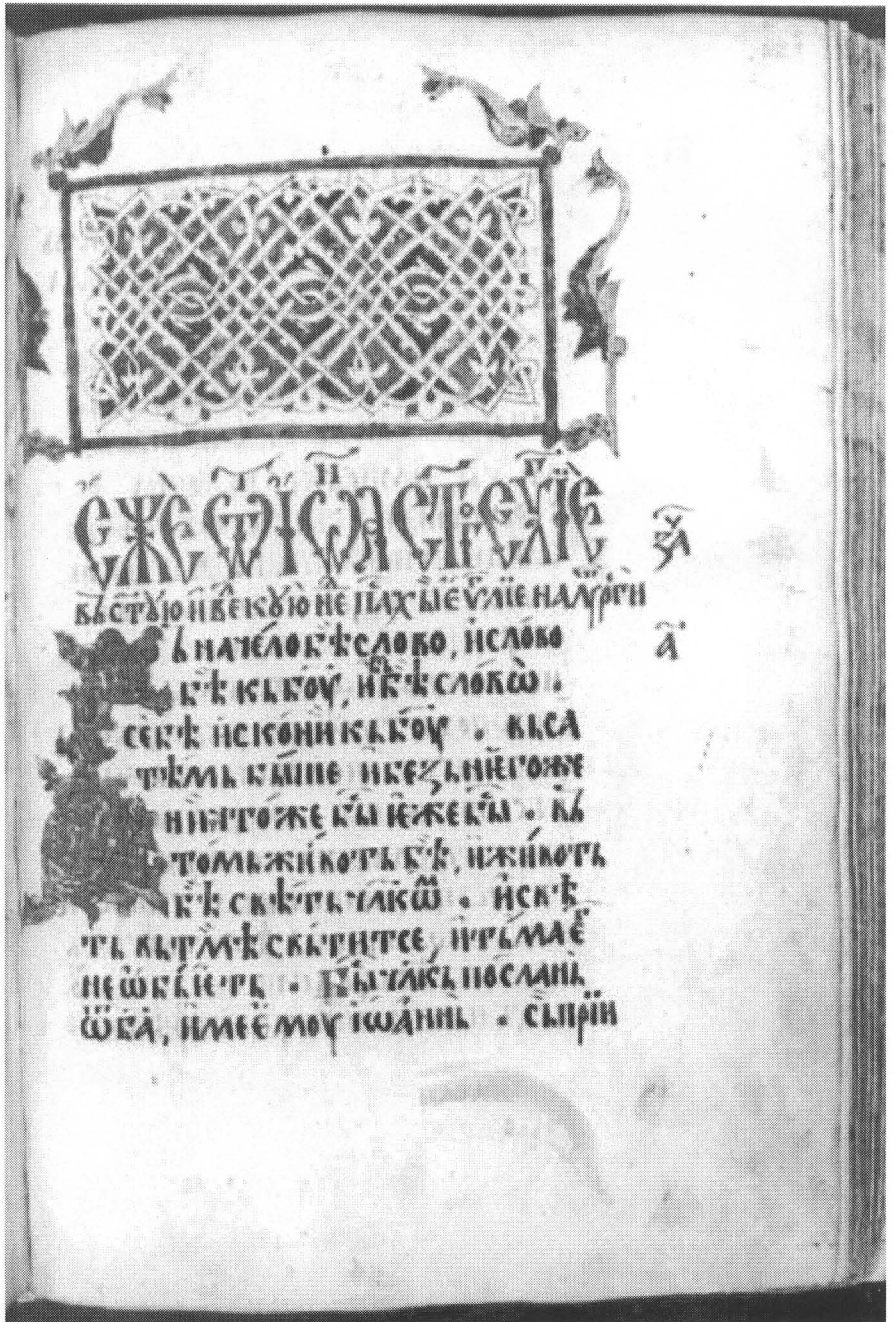 Єже ѿ Іѡ҃а ст҃ое єѵ҃ліе
вь ст҃ꙋю и вє҃кꙋю нє҃ пасхы є҃ѵліе на лѵ҃рги
Вь начело бѣ слово, и слово
бѣ кь боу҃, и б҃ь бѣ словѡ .
се бѣ искони кь боу҃ . вьса
тѣмь быше и безь ниегоже
ничтоже бы иеже бы . вь
томь животь бѣ, и животь
бѣ свѣть чл҃кѡⷨ . и свѣ
ть вь тмѣ свьтитсе и тьма е҃
не ѡбьиеть . Бы чл҃кь послань
ѿ ба҃, име емоу іѡаннь . сь прїи
з҃а҃
а҃